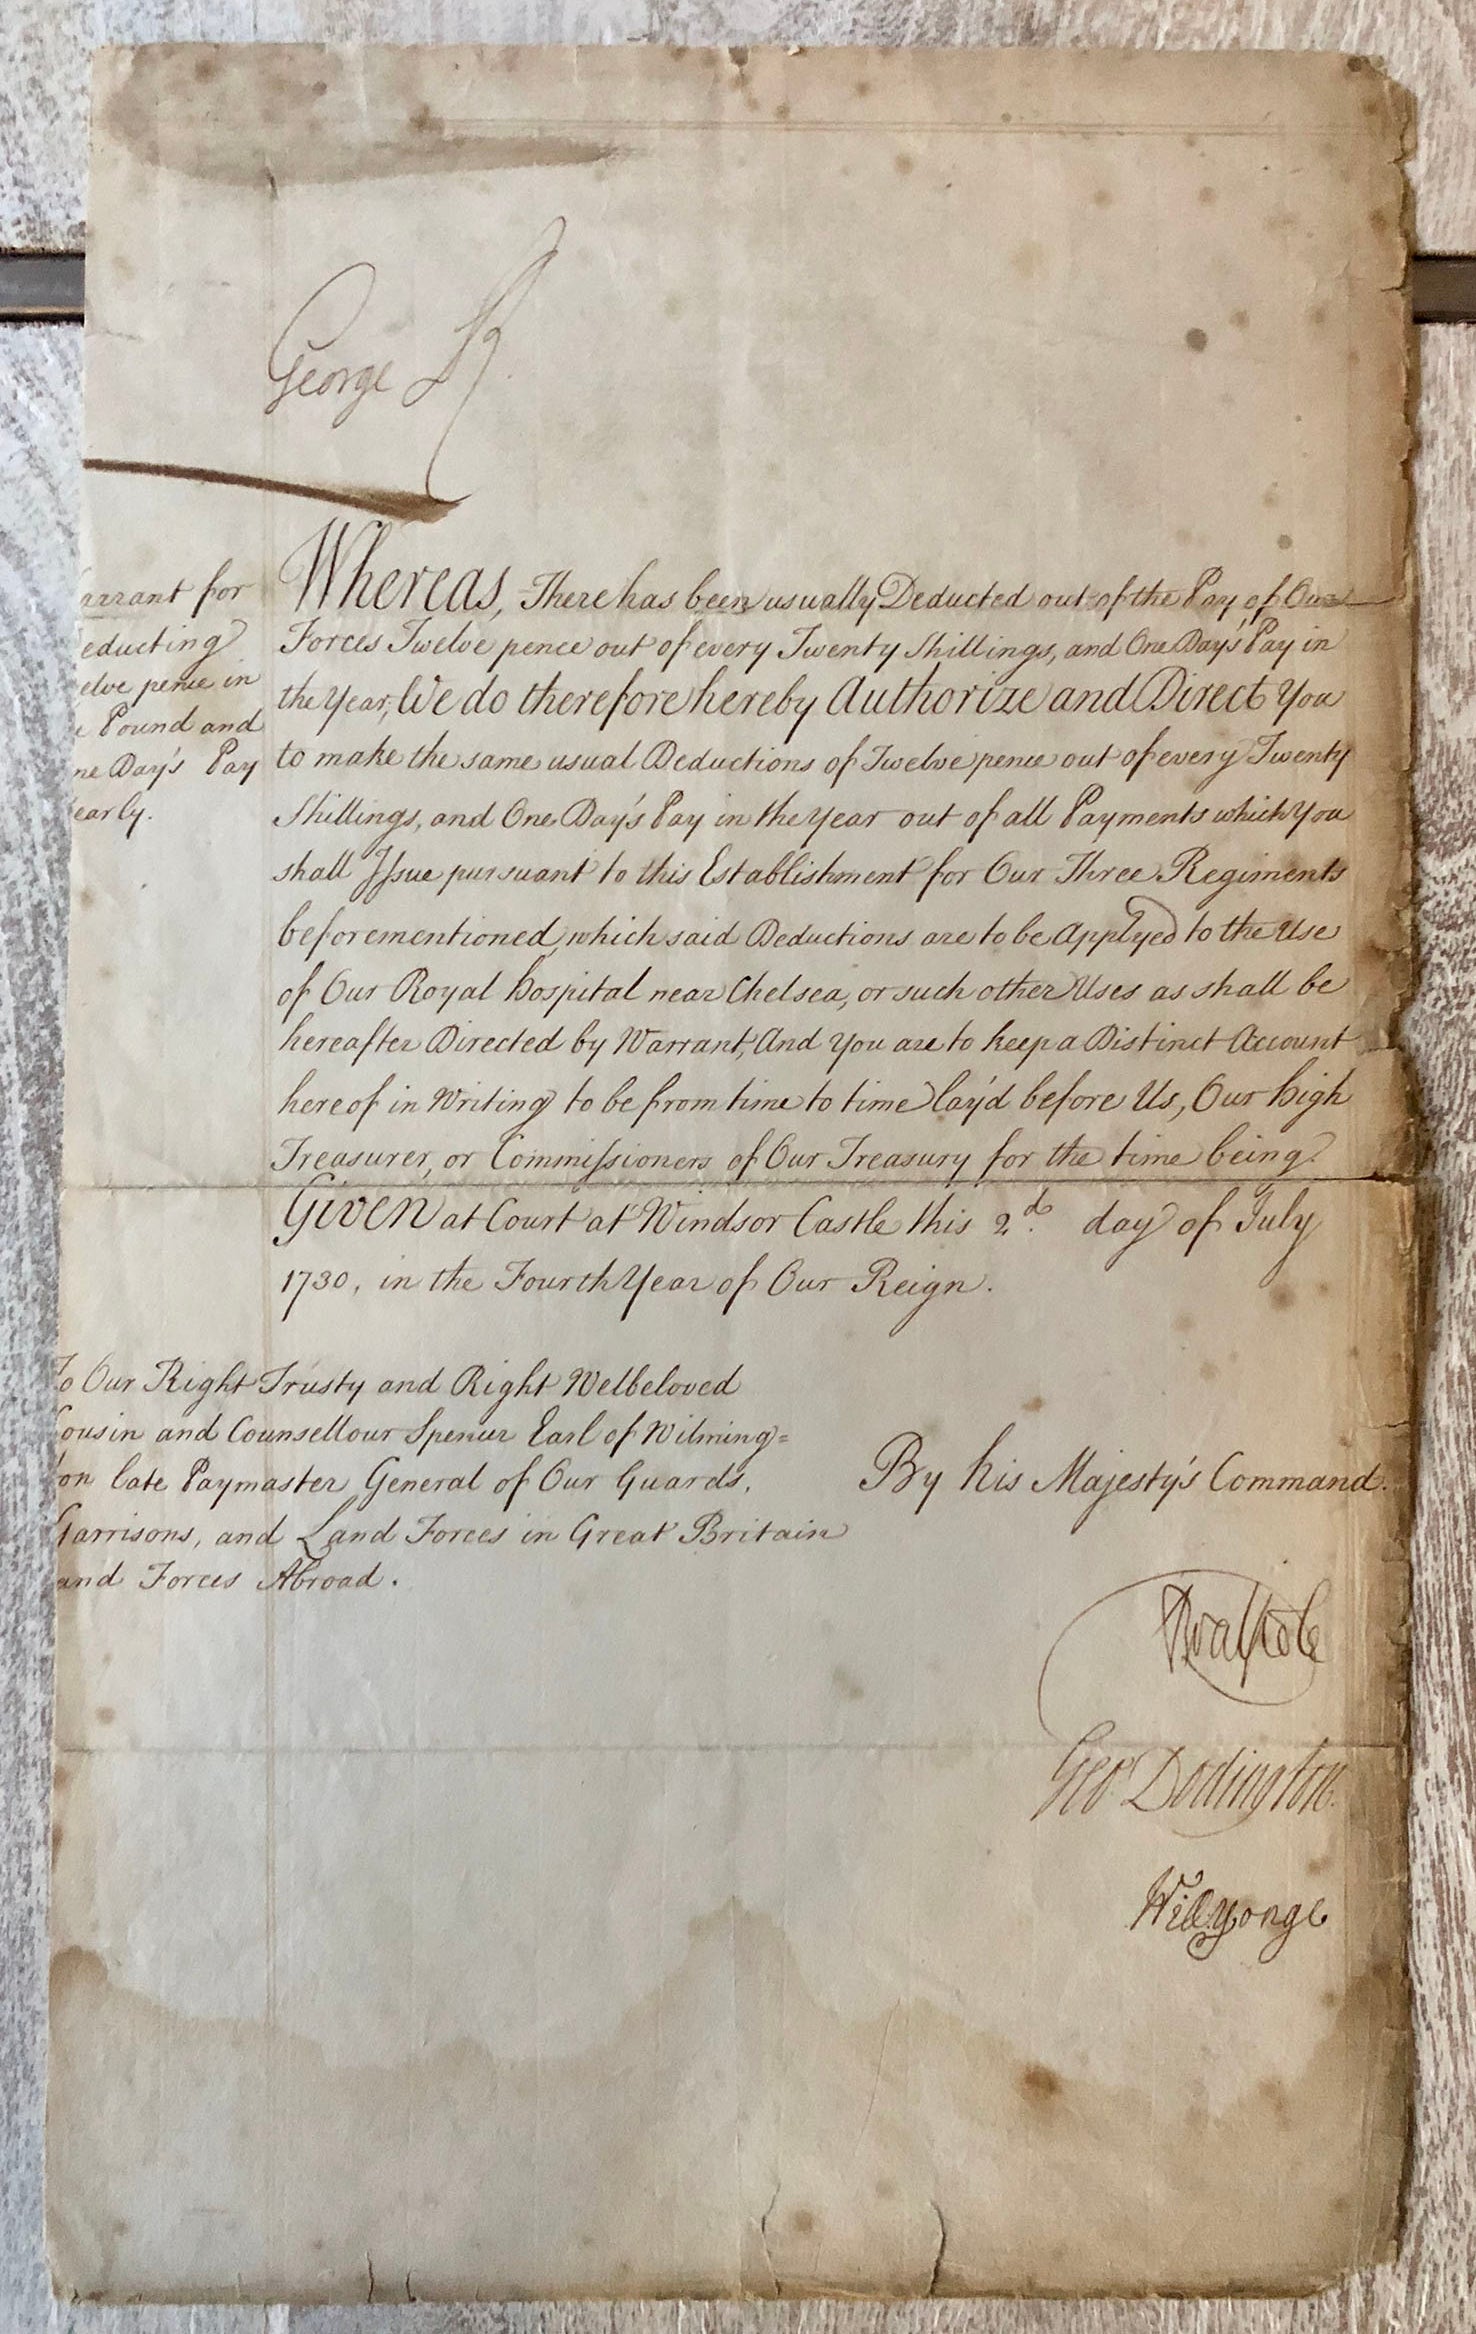 George R
arrant for
educting
elve pence in
e Pound and
ne Day's Pay
early.
Whereas, There has been usually Deducted out of the Pay of Our
Forces Twelve pence out of every Twenty Shillings, and One Day's Pay in
the Year, We do therefore hereby Authorize and Direct You
to make the same usual Deductions of Twelve pence out of every Twenty
Shillings, and One Day's Pay in the Year out of all Payments which You
shall Issue pursuant to this Establishment for Our Three Regiments
beforementioned, which said Deductions are to be Applyed to the Use
of Our Royal Hospital near Chelsea, or such other Uses as shall be
hereafter Directed by Warrant, And You are to keep a Distinct Account
hereof in Writing to be from time to time lay'd before Us, Our High
Treasurer, or Commissioners of Our Treasury for the time being.
Given at Court at Windsor Castle this 2.d day of July
1730, in the Fourth Year of Our Reign.
To Our Right Trusty and Right Welbeloved
Cousin and Counsellour Spencer Earl of Wilming=
ton late Paymaster General of Our Guards,
Garrisons, and Land Forces in Great Britain
and Forces Abroad.
By his Majesty's Command.
RWalpole
Geo: Dodington.
Will: Yonge